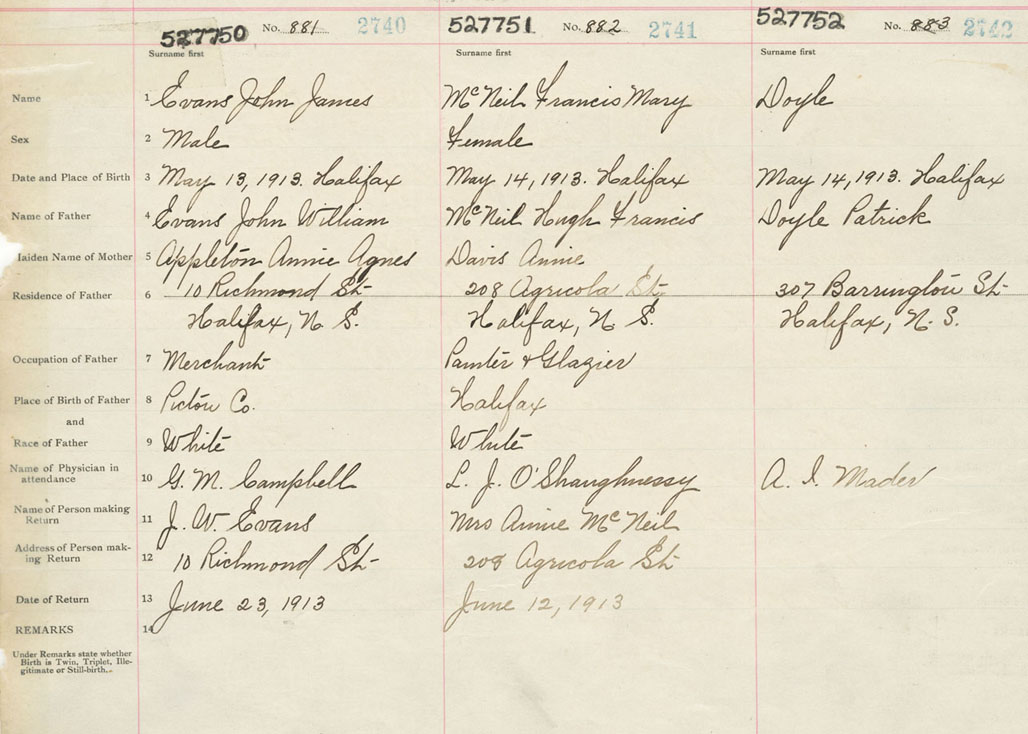 527750 No. 881 2740 527751 No. 882 2741 527752 No. 883 2742
Surname first Surname first Surname first
Name 1 Evans John James McNeil Francis Mary Doyle
Sex 2 Male Female
Date and Place of Birth 3 May 13, 1913. Halifax May 14, 1913. Halifax May 14, 1913. Halifax
Name of Father 4 Evans John William McNeil Hugh Francis Doyle Patrick
Maiden Name of Mother 5 Appleton Annie Agnes Davis Annie
Residence of Father 6 10 Richmond St 208 Agricola St 307 Barrington St
Halifax, N. S. Halifax, N. S. Halifax, N. S.
Occupation of Father 7 Merchant Painter & Glazier
Place of Birth of Father 8 Pictou Co. Halifax
and
Race of Father 9 White White
Name of Physician in
attendance 10 G. M. Campbell L. J. O'Shaughnessy A. I. Mader
Name of Person making
Return 11 J. W. Evans Mrs Annie McNeil
Address of Person mak-
ing Return 12 10 Richmond St 208 Agricola St
Date of Return 13 June 23, 1913 June 12, 1913
REMARKS 14
Under Remarks state whether
Birth is Twin, Triplet, Ille-
gitimate or Still-birth.